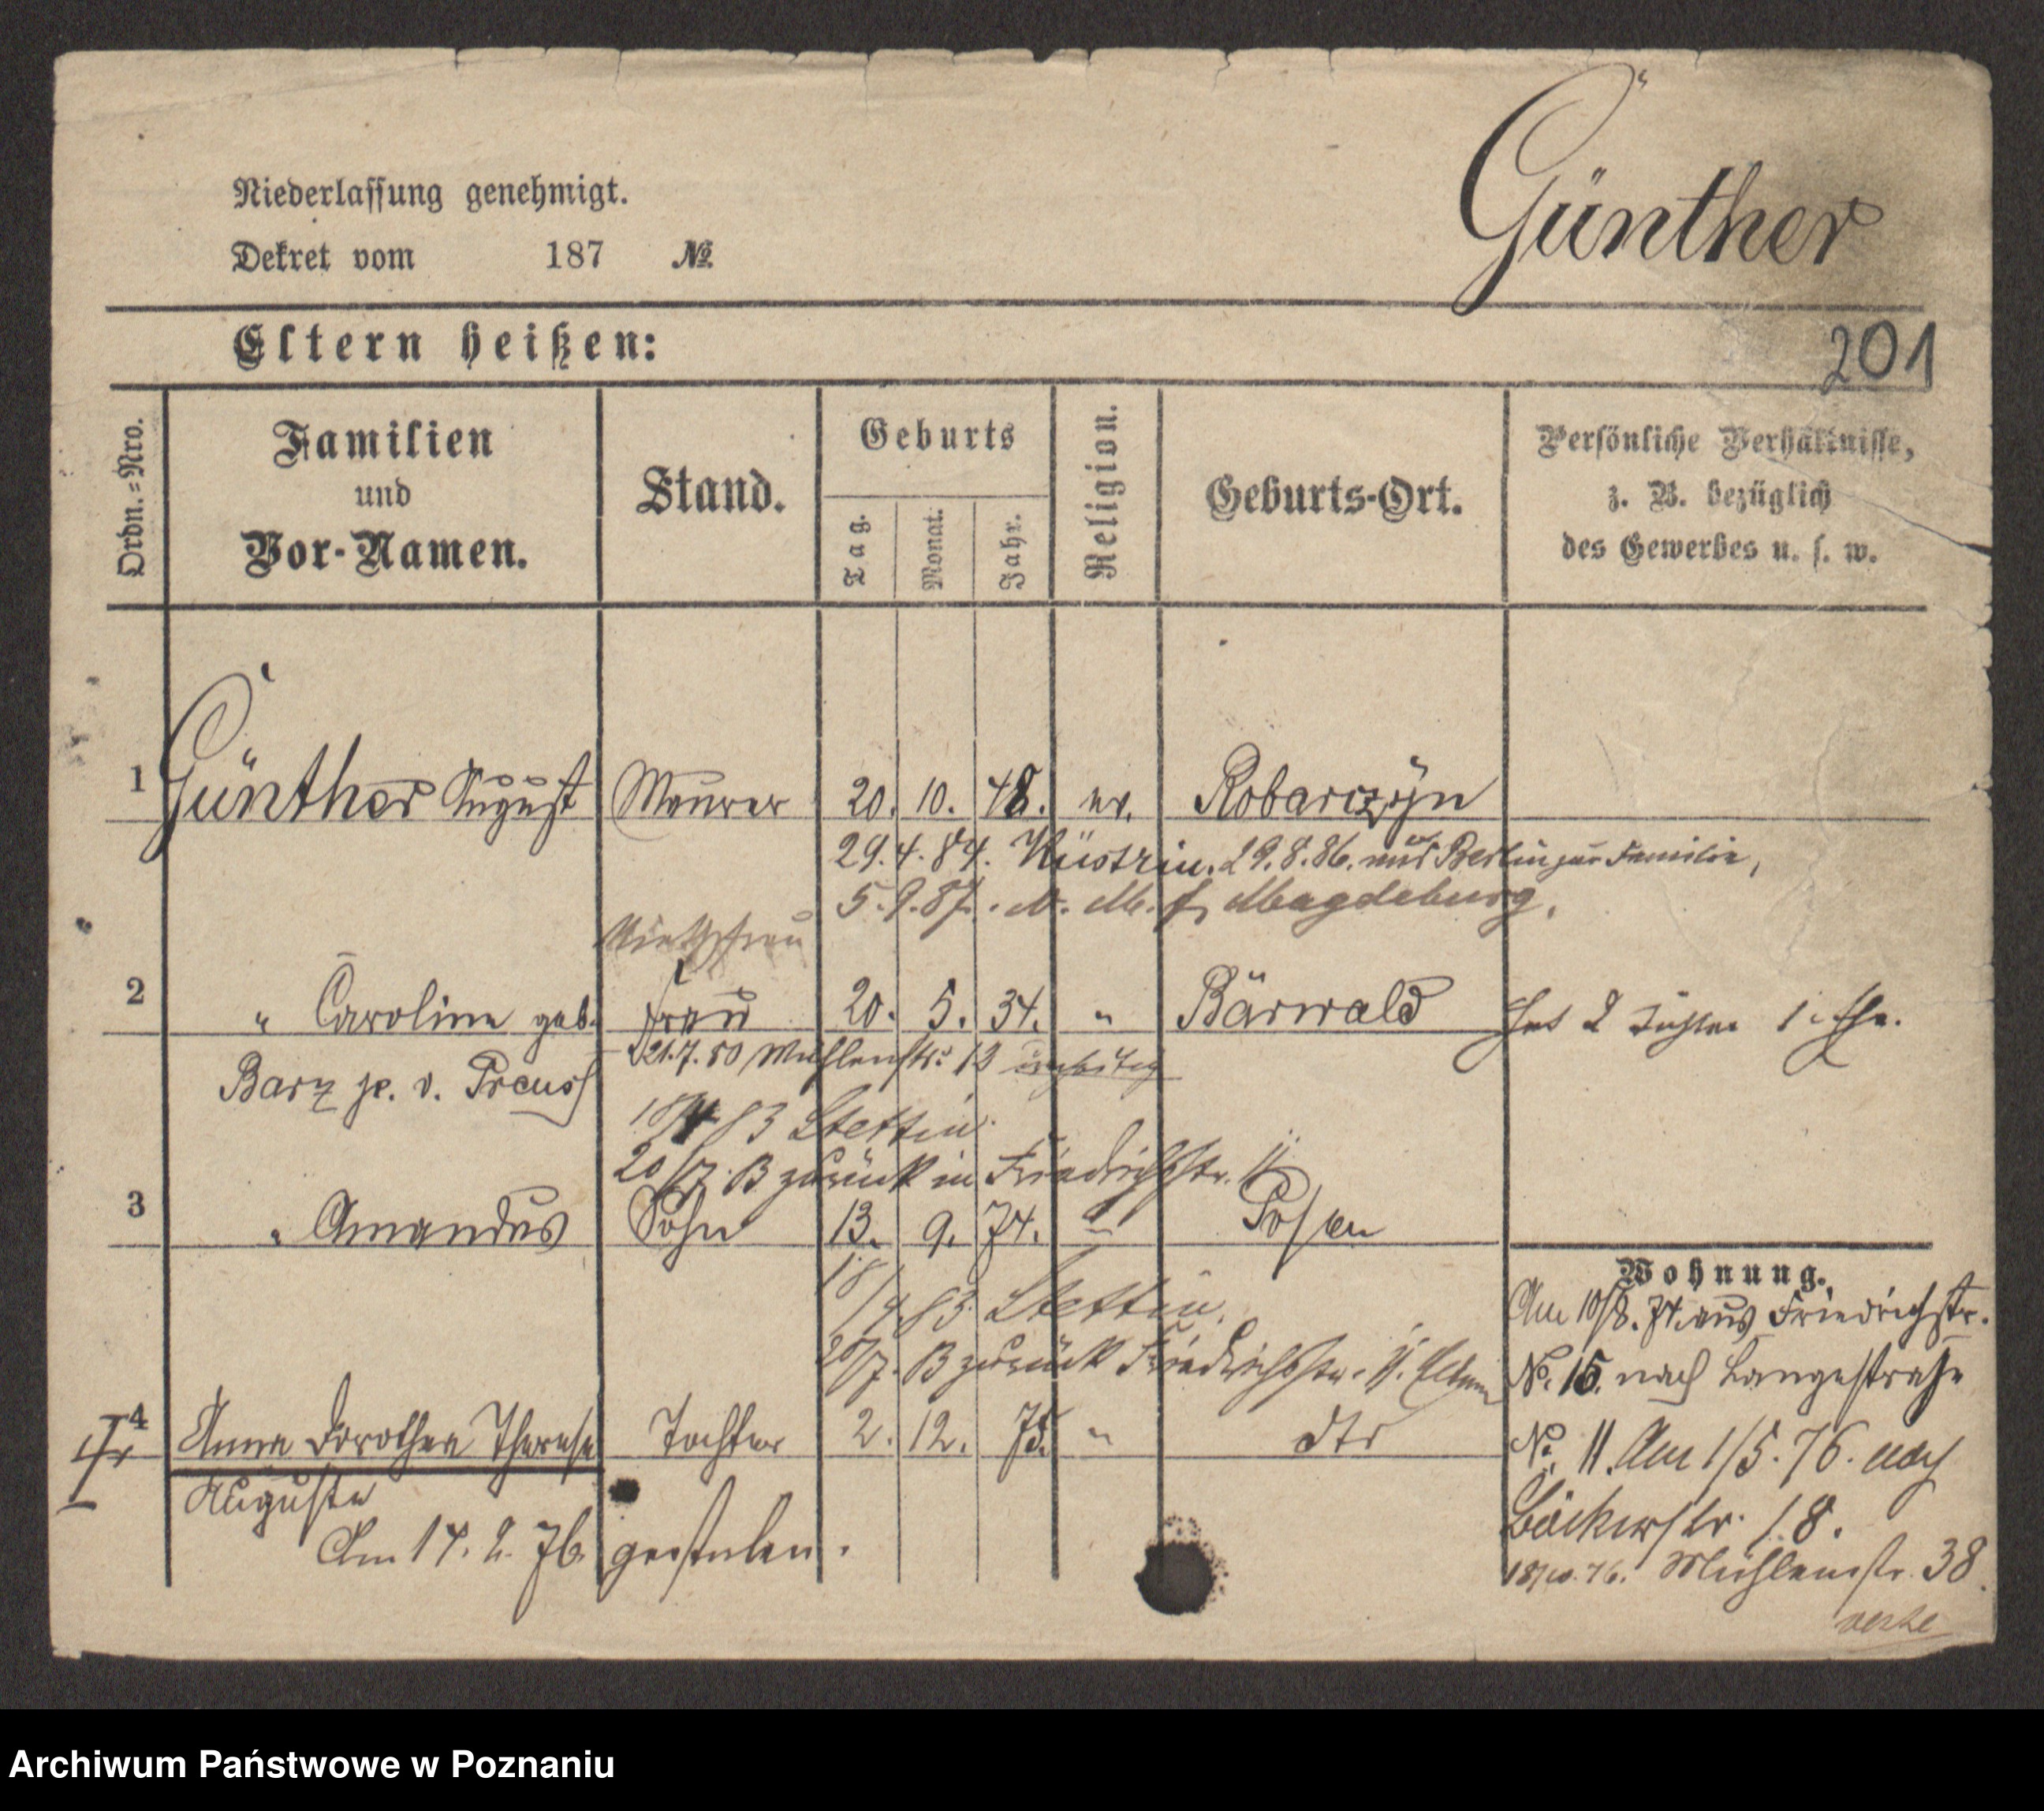 Günther
Niederlassung genehmigt.
Dekret vom 187 №
Eltern heißen:
201
Ordn.=Nro.
Familien
und
Vor-Namen.
Stand.
Geburts
Tag.
Monat.
Jahr.
Religion.
Geburts-Ort.
Persönliche Verhältnisse,
z. B. bezüglich
des Gewerbes u. s. w.
1 Günther August Maurer 20. 10. 48. ev. Robarczyn
29. 4. 84. Küstrin. 29. 8. 86. Berlin zur Familie,
5. 9. 87. Magdeburg.
2 " Caroline geb. Frau 20. 5. 34. " Bärwald
Barz v. Preuss
21. 7. 80 Mühlenstr. 13
18/4 83 Stettin
20/7. 83 zurück in Friedrichsstr. 11
3 " Amandus Sohn 13. 9. 74. " Posen
18/4 83 Stettin.
20/7. 83 zurück Friedrichsstr. 11.
4 Anna Dorothea Therese Tochter 2. 12. 75. " dto
Auguste
Am 14. 2. 76 gestorben.
Wohnung.
Am 10/8. 74. aus Friedrichstr.
No. 15. nach Langestraße
No. 11. Am 1/5. 76. nach
Bäckerstr. 18.
18/10. 76. Mühlenstr. 38.
Archiwum Państwowe w Poznaniu